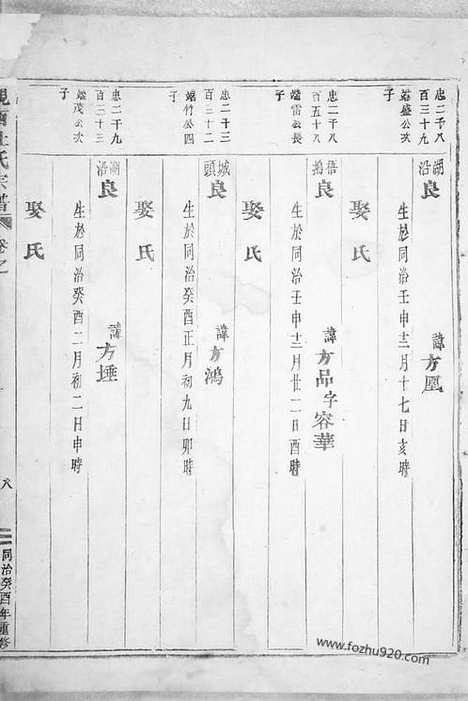 忠二千八
百三十九
端盛公次
子
湖沿
良
諱方凰
生於同治壬申十二月十七日亥時
娶氏
忠二千八
百五十八
端雷公長
子
良
諱方品字容華
生於同治壬申十二月廿二日酉時
娶氏
忠二千三
百三十二
端竹公四
子
城頭
良
諱方鴻
生於同治癸酉正月初九日卯時
娶氏
忠二千九
百三十三
端茂公次
子
湖沿
良
諱方埵
生於同治癸酉二月初二日申時
娶氏
氏宗譜
卷之
八
同治癸酉年重修
www.fozhu920.com